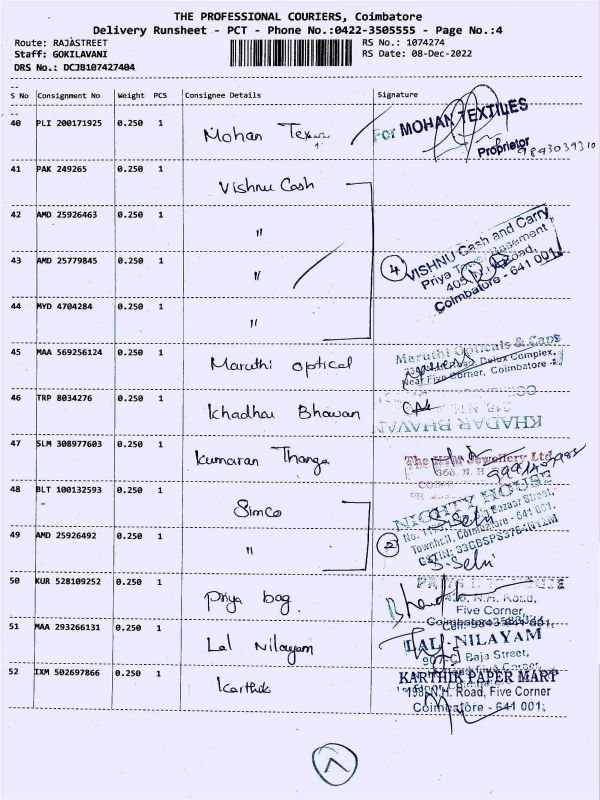 THE PROFESSIONAL COURIERS, Coimbatore
Delivery Runsheet - PCT - Phone No.:0422-3505555 - Page No.:4
Route: RAJASTREET RS No.: 1074274
Staff: GOKILAVANI RS Date: 08-Dec-2022
DRS No.: DCJB107427404
S No Consignment No Weight PCS Consignee Details Signature
40 PLI 200171925 0.250 1 Mohan For MOHAN TEXTILES
Proprietor
41 PAK 249265 0.250 1 Vishnu Cash
42 AMD 25926463 0.250 1 "
VISHNU Cash and Carry
43 AMD 25779845 0.250 1 " 4 Priya
Coimbatore - 641 001
44 MYD 4704284 0.250 1 "
45 MAA 569256124 0.250 1 Maruthi optical Maruthi Opticals & Caps
Delux Complex,
Near Five Corner, Coimbatore -
46 TRP 8034276 0.250 1 Khadhar Bhavan
KHADAR BHAVAN
47 SLM 308977603 0.250 1 Kumaran Thanga The Jewellery Ltd
366, N. H.
48 BLT 100132593 0.250 1 Simco NIGHTY HOUSE
Bazaar Street,
49 AMD 25926492 0.250 1 " 2 Townhall, Coimbatore - 641 001.
S. Selvi
50 KUR 528109252 0.250 1 Priya bag
N.H. Road,
Five Corner
51 MAA 293266131 0.250 1 Lal Nilayam LALJ NILAYAM
Raja Street,
52 IXM 502697866 0.250 1 Karthik KARTHIK PAPER MART
198, N.H. Road, Five Corner
Coimbatore - 641 001.